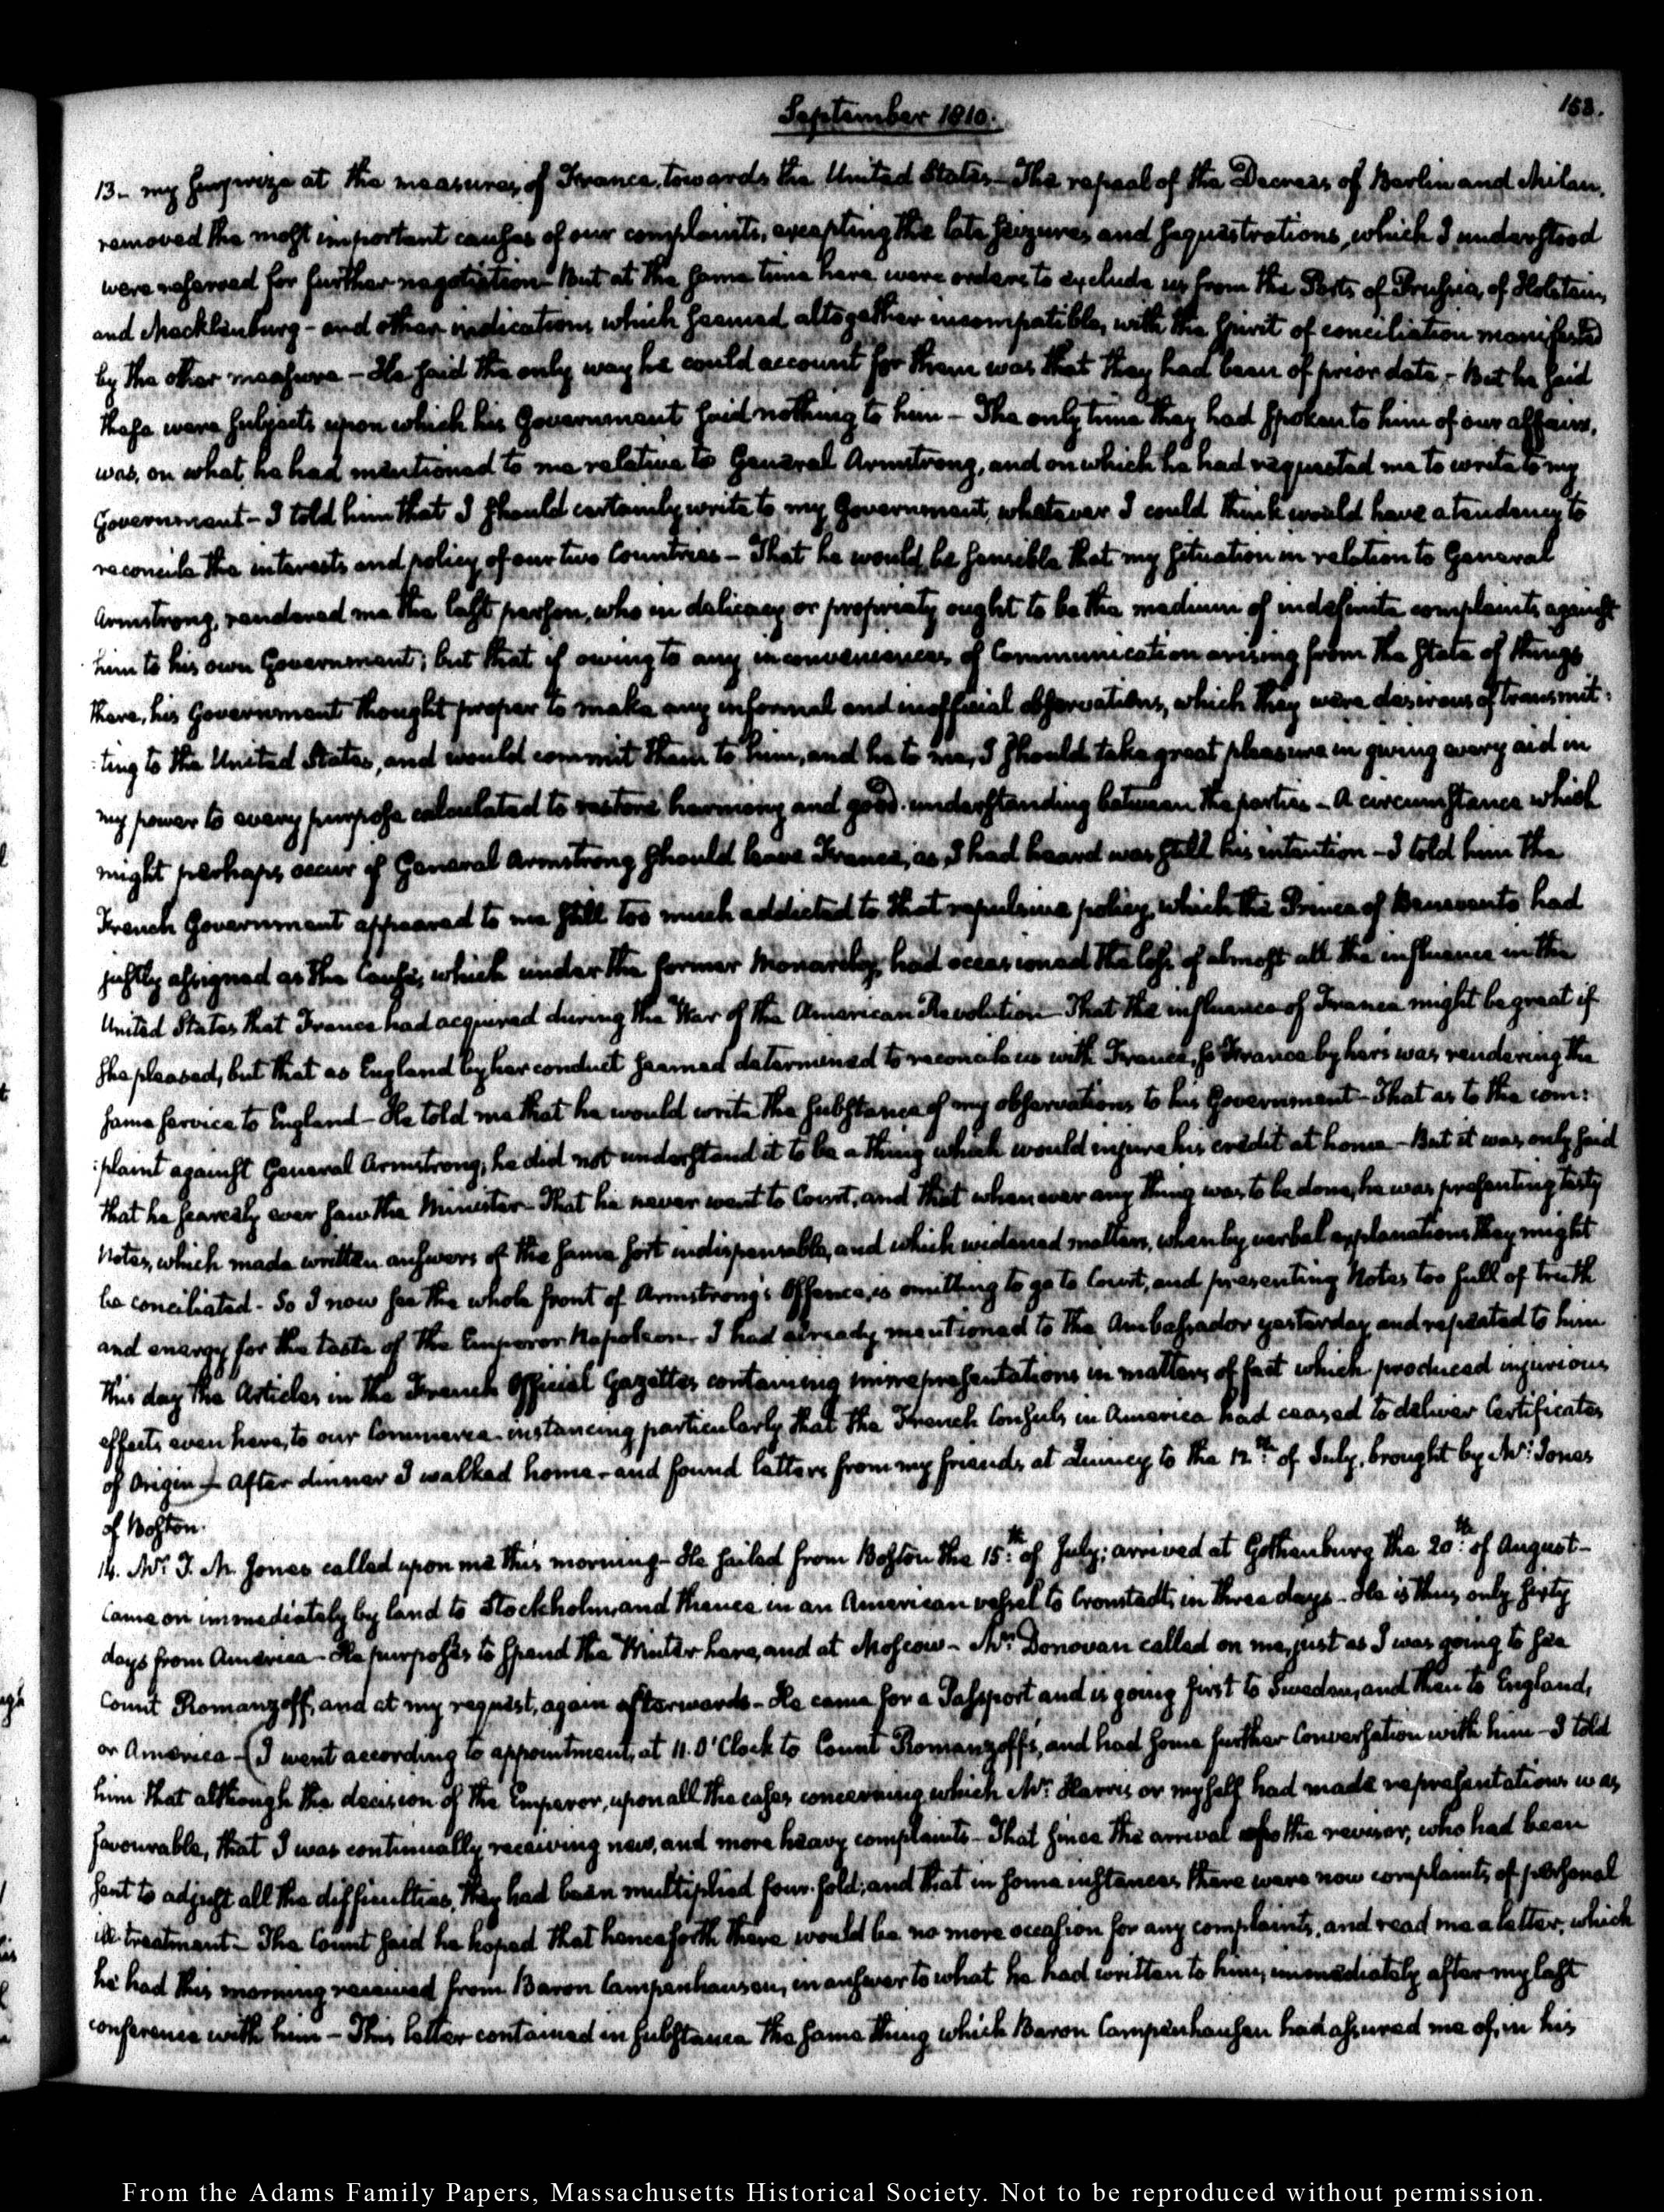 September 1810.
153.
13- my surprize at the measures of France, towards the United States - The repeal of the Decrees of Berlin and Milan,
removed the most important causes of our complaints, excepting the late seizures and sequestrations, which I understood
were reserved for further negotiation - But at the same time here were orders to exclude us from the Ports of Prussia, of Holstein,
and Mecklenburg - and other indications which seemed altogether incompatible, with the spirit of conciliation manifested
by the other measure - He said the only way he could account for them was that they had been of prior date - But he said
these were subjects upon which his Government said nothing to him - The only time they had spoken to him of our affairs,
was, on what he had mentioned to me relative to General Armstrong, and on which he had requested me to write to my
Government - I told him that I should certainly write to my Government, whatever I could think would have a tendency to
reconcile the interests and policy of our two Countries - That he would be sensible that my situation in relation to General
Armstrong, rendered me the last person, who in delicacy or propriety ought to be the medium of indefinite complaints against
him to his own Government; but that if owing to any inconveniences of Communication arising from the state of things
there, his Government thought proper to make any informal and inofficial observations, which they were desirous of transmit:
:ting to the United States, and would commit them to him, and he to me, I should take great pleasure in giving every aid in
my power to every purpose calculated to restore harmony and good understanding between the parties - A circumstance which
might perhaps occur if General Armstrong should leave France, as I had heard was still his intention - I told him the
French Government appeared to me still too much addicted to that repulsive policy, which the Prince of Benevento had
justly assigned as the Cause, which under the former Monarchy, had occasioned the loss of almost all the influence in the
United States that France had acquired during the War of the American Revolution - That the influence of France might be great if
she pleased, but that as England by her conduct seemed determined to reconcile us with France, so France by hers was rendering the
same service to England - He told me that he would write the substance of my observations to his Government - That as to the com:
:plaint against General Armstrong, he did not understand it to be a thing which would injure his credit at home - But it was only said
that he scarcely ever saw the Minister - That he never went to Court, and that whenever any thing was to be done, he was presenting testy
Notes, which made written answers of the same sort indispensable, and which widened matters, when by verbal explanations they might
be conciliated - So I now see the whole front of Armstrong's Offence, is omitting to go to Court, and presenting Notes too full of truth
and energy for the taste of the Emperor Napoleon. I had already mentioned to the Ambassador yesterday, and repeated to him
this day the Articles in the French Official Gazettes containing misrepresentations in matters of fact which produced injurious
effects even here, to our Commerce - instancing particularly that the French Consuls in America had ceased to deliver Certificates
of Origin - After dinner I walked home - and found letters from my friends at Quincy to the 12th. of July, brought by Mr. Jones
of Boston.
14. Mr. T. M. Jones called upon me this morning - He sailed from Boston the 15th. of July; arrived at Gothenburg the 20th. of August -
Came on immediately by land to Stockholm, and thence in an American vessel to Cronstadt, in three days - He is thus only sixty
days from America - He purposes to spend the Winter here, and at Moscow - Mr. Donovan called on me, just as I was going to see
Count Romanzoff, and at my request, again afterwards - He came for a Passport and is going first to Sweden, and then to England,
or America - (I went according to appointment, at 11. O'Clock to Count Romanzoff's, and had some further Conversation with him - I told
him that although the decision of the Emperor, upon all the cases concerning which Mr. Harris or myself had made representations was
favourable, that I was continually receiving new, and more heavy complaints - That since the arrival of the revisor, who had been
sent to adjust all the difficulties, they had been multiplied four-fold; and that in some instances there were now complaints of personal
ill-treatment - The Count said he hoped that henceforth there would be no more occasion for any complaints, and read me a letter, which
he had this morning received from Baron Campenhausen, in answer to what he had written to him, immediately after my last
conference with him - This letter contained in substance the same thing which Baron Campenhausen had assured me of, in his
From the Adams Family Papers, Massachusetts Historical Society. Not to be reproduced without permission.